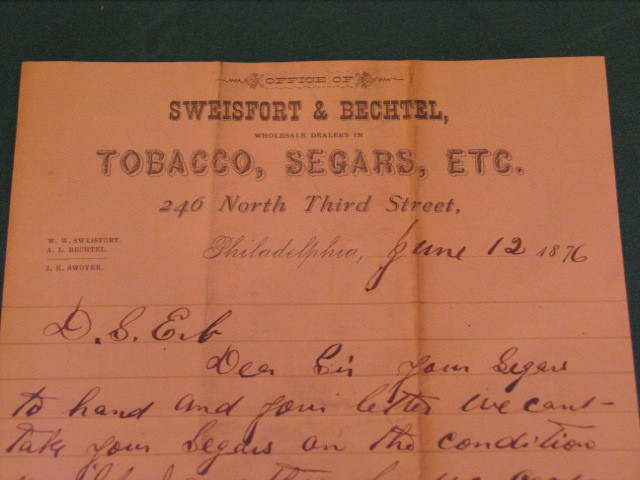 OFFICE OF
SWEISFORT & BECHTEL,
WHOLESALE DEALERS IN
TOBACCO, SEGARS, ETC.
246 North Third Street,
W. W. SWEISFORT.
A. L. BECHTEL.
J. K. SWOYER.
Philadelphia, June 12 1876
D. S. Erb
Dear Sir your Segars
to hand and your letter we cant
take your Segars on the condition